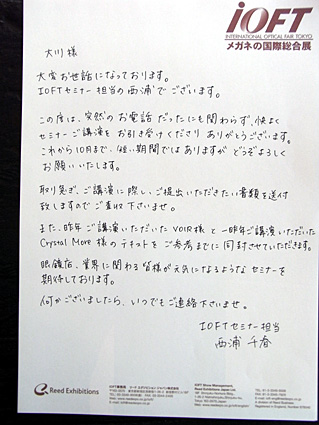 iOFT
INTERNATIONAL OPTICAL FAIR TOKYO
メガネの国際総合展
大川様
大変お世話になっております。
IOFTセミナー担当の西浦でございます。
この度は、突然のお電話だったにも関わらず、快よく
セミナーご講演をお引き受けくださりありがとうございます。
これから10月まで、短い期間ではありますがどうぞよろしく
お願いいたします。
取り急ぎ、ご講演に際し、ご提出いただきたい書類を送付
致しますのでご査収下さいませ。
また、昨年ご講演いただいたVOIR様と一昨年ご講演いただいた
Crystal More様のテキストをご参考までに同封させていただきます。
眼鏡店、業界に関わる皆様が元気になるようなセミナーを
期待しております。
何かございましたら、いつでもご連絡下さいませ。
IOFTセミナー担当
西浦 千春
Reed Exhibitions